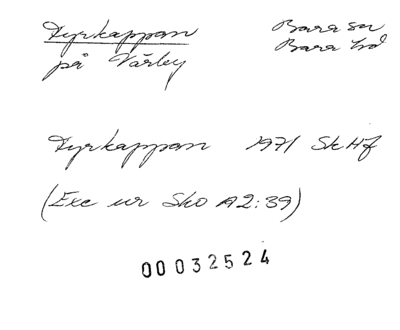 Fyrkappan
på Värley
Bara sn
Bara hd
Fyrkappan 1971 SkHf
(Exc ur Sko A2:39)
00032524